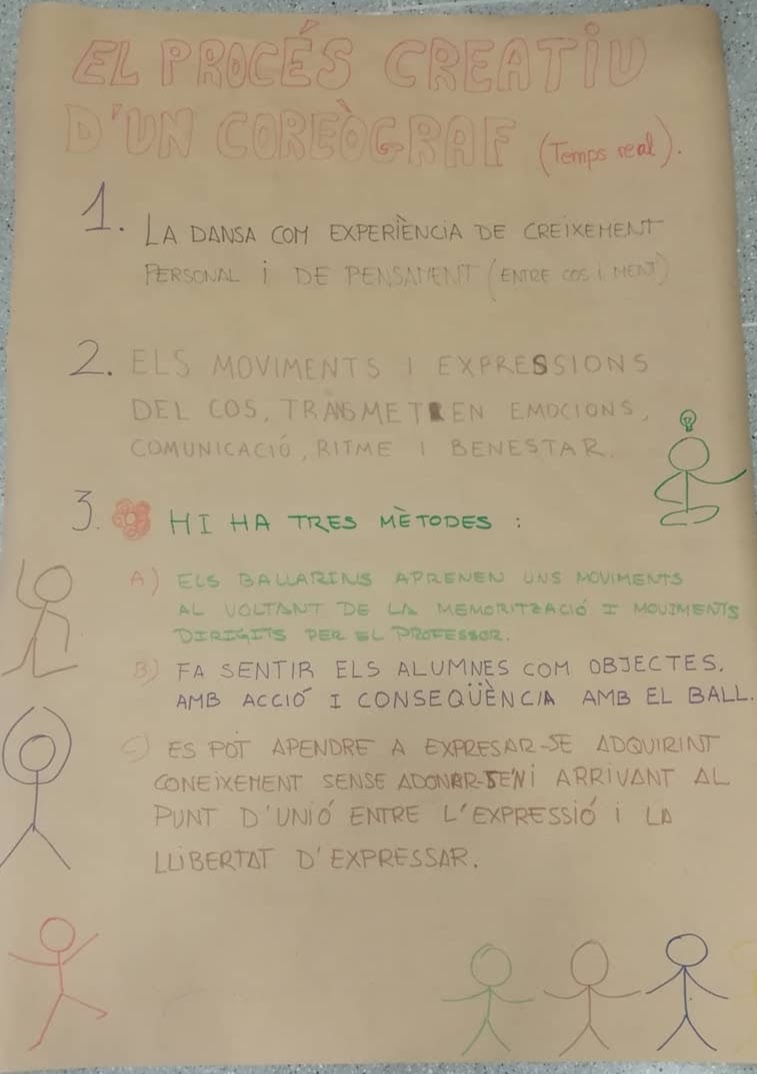 EL PROCÉS CREATiU
D'UN COREÒGRAF (Temps real).
1. LA DANSA COM EXPERIÈNCiA DE CREiXEMENT
PERSONAL i DE PENSAMENT (ENTRE COS i MENT)
2. ELS MOVIMENTS I EXPRESSIONS
DEL COS, TRANSMETREN EMOCIONS,
COMUNICACIÓ, RITME I BENESTAR.
3. HI HA TRES MÈTODES :
A) ELS BALLARINS APRENEN UNS MOVIMENTS
AL VOLTANT DE LA MEMORITZACIÓ I MOVIMENTS
DIRIGITS PER EL PROFESSOR.
B) FA SENTIR ELS ALUMNES COM OBJECTES.
AMB ACCIÓ I CONSEQÜÈNCIA AMB EL BALL.
C) ES POT APENDRE A EXPRESAR-SE ADQUIRINT
CONEiXEMENT SENSE ADONAR-SE'N i ARRIVANT AL
PUNT D'UNIÓ ENTRE L'EXPRESSIÓ i LA
LLiBERTAT D'EXPRESSAR.